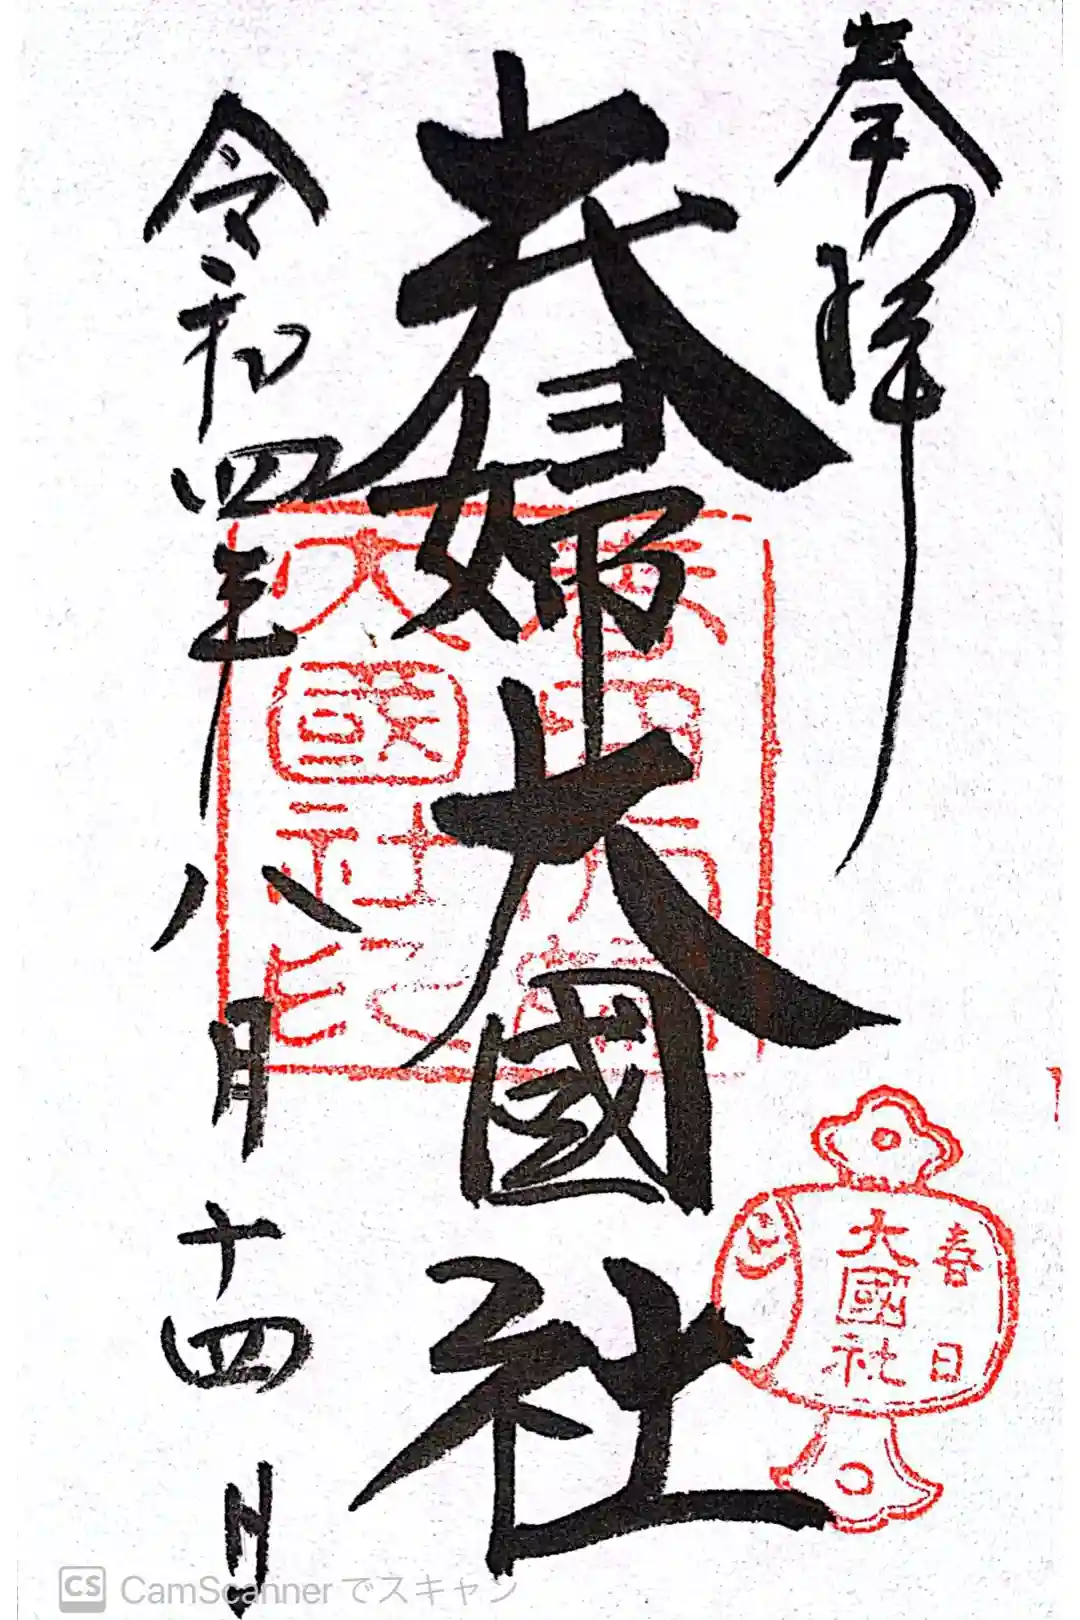 奉拝
夫婦大國社
令和四年八月十四日
春日
大國社
大國社印
CS CamScanner でスキャン